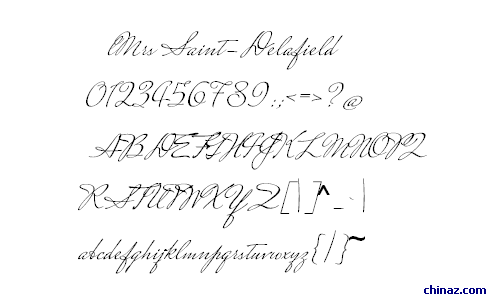 Mrs Saint-Delafield
0123456789:;<=>?@
ABCDEFGHIJKLMNOPQ
RSTUVWXYZ[\]^_`|
abcdefghijklmnopqrstuvwxyz{|}~
chinaz.com